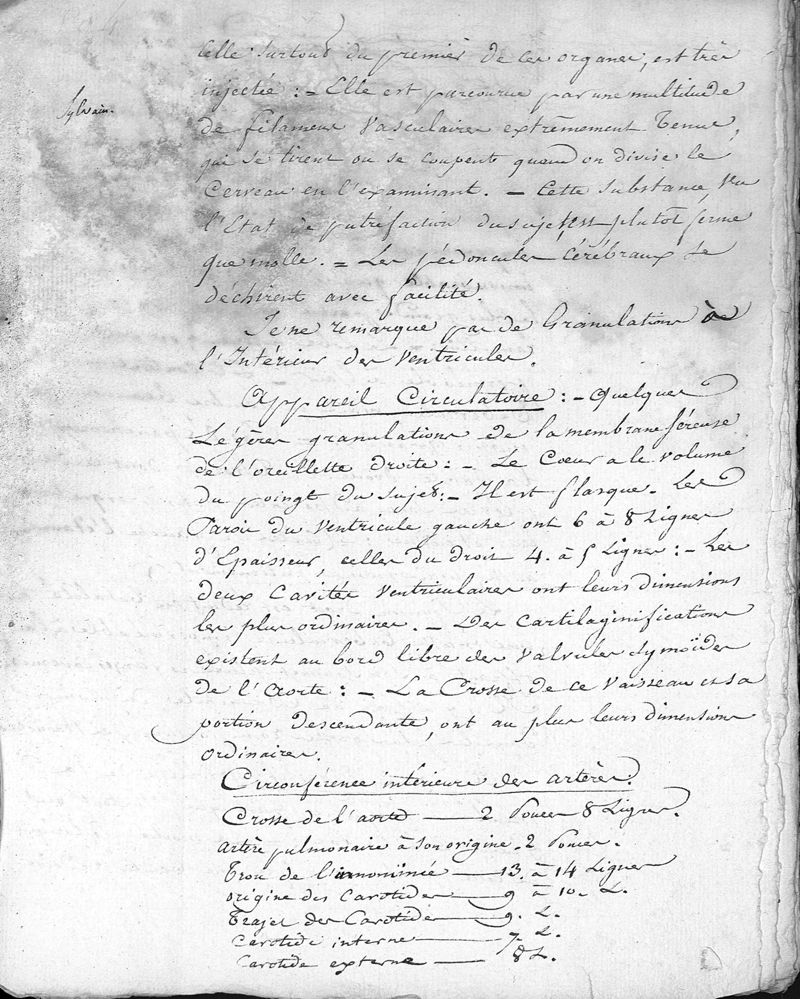 Celle surtout du premier de ces organes, est très
Sylvain.
injectée : - Elle est parcourue par une multitude
de filamens vasculaires extrêmement tenus,
qui se tirent ou se coupent quand on divise le
Cerveau en l'examinant. - Cette substance, vu
l'Etat de putréfaction du sujet, est plutôt ferme
que molle. = Les pédoncules Cérébraux se
déchirent avec facilité.
Je ne remarque pas de Granulations à
l'Intérieur des Ventricules.
Appareil Circulatoire : - Quelques
Légères granulations de la membrane séreuse
de l'oreillette droite : - Le Cœur a le volume
du poingt du sujet : - Il est flasque. Les
Parois du Ventricule gauche ont 6 à 8 Lignes
d'Epaisseur, celles du droit 4. à 5 Lignes : - Les
deux Cavités Ventriculaires ont leurs dimensions
les plus ordinaires. - Des Cartilaginifications
existent au bord libre des Valvules sygmoïdes
de l'Aorte : - La Crosse de ce Vaisseau et sa
portion descendante, ont au plus leurs dimensions
ordinaires.
Circonférence intérieure des artères.
Crosse de l'aorte — 2 Pouces 8 Lignes.
artère pulmonaire à son origine. 2 Pouces.
Tron de l'innominée — 13. à 14 Lignes
origine des Carotides — 9 à 10. L.
Trajet des Carotides — 9. L.
Carotide interne — 7. L.
Carotide externe — 8 L.